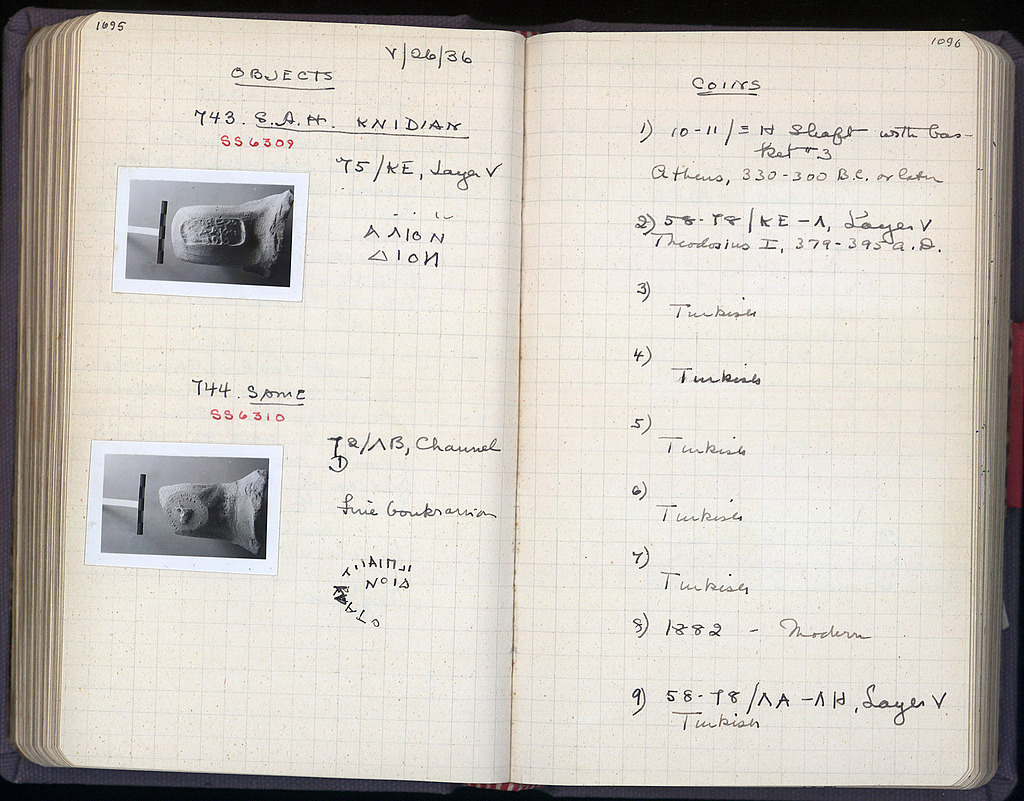 1095
V/26/36
OBJECTS
743. S.A.H. KNIDIAN
SS6309
75/KE, Layer V
ΑΛΙΟΝ
ΔΙΟИ
744. SAME
SS6310
72/ΛΒ, Channel
Fine boukranion
ΔΙΟΝ
1096
COINS
1) 10-11/Ξ Η Shaft with bas-
ket #3
Athens, 330-300 B.C. or later
2) 58-78/ΚΕ-Λ, Layer V
Theodosius I, 379-395 A.D.
3)
Turkish
4)
Turkish
5)
Turkish
6)
Turkish
7)
Turkish
8) 1882 - Modern
9) 58-78/ΛΑ-ΛΗ, Layer V
Turkish